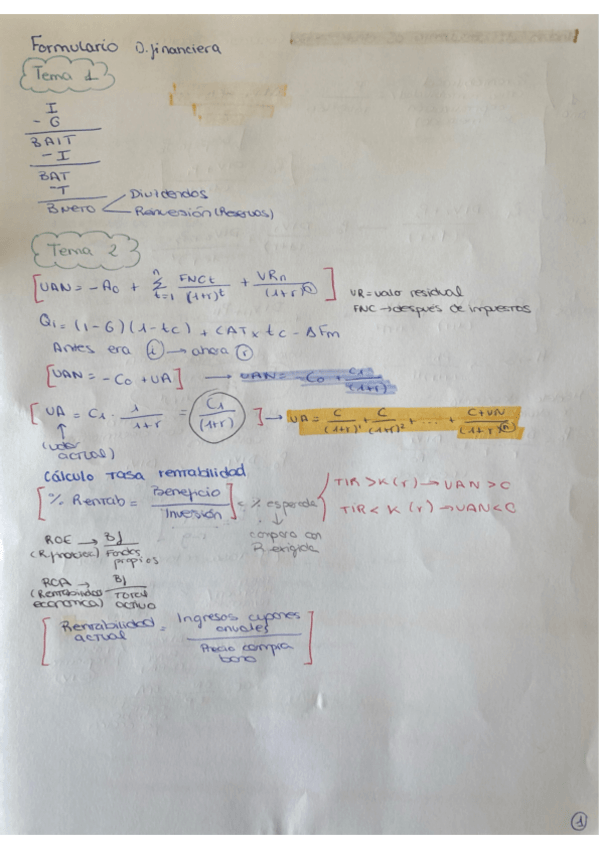 Formulario D. financiera
Tema 1
I
- G
BAIT
- I
BAT
-T
BNETO
Dividendos
Reinversión (Reservas)
Tema 2
[VAN = -A0 + Σ(t=1, n) FNCt/(1+r)^t + VRn/(1+r)^n]
VR = valor residual
FNC → después de impuestos
Qi = (I-G)(1-tc) + CAT x tc - ΔFm
Antes era (i) → ahora (r)
[VAN = -C0 + VA] → VAN = -C0 + C1/(1+r)
[VA = C1 · 1/1+r = C1/(1+r)] → VA = C/(1+r)^1 + C/(1+r)^2 + ... + C+VN/(1+r)^n
(valor actual)
Cálculo tasa rentabilidad
[% Rentab = Beneficio/Inversión] = % esperada
↓
compara con R. exigida
TIR > K (r) → VAN > 0
TIR < K (r) → VAN < 0
ROE → BJ/Fondos propios
ROA → BJ/Total activo
(Rentabilidad económica)
[Rentabilidad actual = Ingresos cupones anuales/Precio compra bono]
1